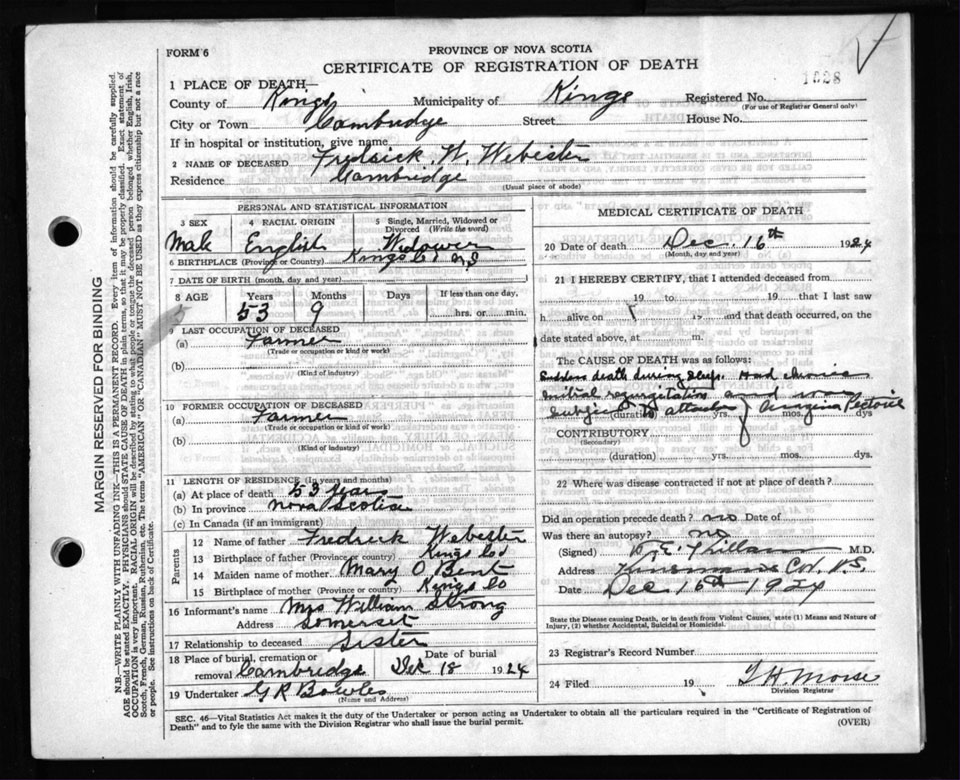 FORM 6
PROVINCE OF NOVA SCOTIA
CERTIFICATE OF REGISTRATION OF DEATH
1 PLACE OF DEATH—
County of Kings Municipality of Kings Registered No. 1028
(For use of Registrar General only)
City or Town Cambridge Street House No.
If in hospital or institution, give name
2 NAME OF DECEASED Fredrick W. Webester
Residence Cambridge
(Usual place of abode)
PERSONAL AND STATISTICAL INFORMATION
3 SEX 4 RACIAL ORIGIN 5 Single, Married, Widowed or Divorced (Write the word)
Male English Widower
6 BIRTHPLACE (Province or Country) Kings Co N.S
7 DATE OF BIRTH (month, day and year)
8 AGE Years Months Days If less than one day,
53 9 hrs. or min.
9 LAST OCCUPATION OF DECEASED
(a) Farmer
(Trade or occupation or kind or work)
(b)
(Kind of industry)
10 FORMER OCCUPATION OF DECEASED
(a) Farmer
(Trade or occupation or kind of work)
(b)
(Kind of industry)
11 LENGTH OF RESIDENCE (In years and months)
(a) At place of death 53 years
(b) In province Nova Scotia
(c) In Canada (if an immigrant)
Parents
12 Name of father Fredrick Webester
13 Birthplace of father (Province or country) Kings Co
14 Maiden name of mother Mary O Bent
15 Birthplace of mother (Province or country) Kings Co
16 Informant's name Mrs William Strong
Address Somerset
17 Relationship to deceased Sister
18 Place of burial, cremation or removal Cambridge Date of burial Dec 18 1924
19 Undertaker G R Bowles
(Name and Address)
MEDICAL CERTIFICATE OF DEATH
20 Date of death Dec. 16th 1924
(Month, day and year)
21 I HEREBY CERTIFY, that I attended deceased from
19 to 19 that I last saw
h alive on and that death occurred, on the
date stated above, at m.
The CAUSE OF DEATH was as follows:
Sudden death during sleep. Had chronic
mitral regurgitation and was
subject to attacks Angina Pectoris
dys
CONTRIBUTORY
(Secondary)
(duration) yrs. mos. dys.
22 Where was disease contracted if not at place of death?
Did an operation precede death? no Date of
Was there an autopsy? no
(Signed) M.D.
Address Kinsmans Cor. N.S.
Date Dec 16th 1924
State the Disease causing Death, or in death from Violent Causes, state (1) Means and Nature of
Injury, (2) whether Accidental, Suicidal or Homicidal.
23 Registrar's Record Number
24 Filed 19 Morse
Division Registrar
SEC. 46—Vital Statistics Act makes it the duty of the Undertaker or person acting as Undertaker to obtain all the particulars required in the "Certificate of Registration of
Death" and to fyle the same with the Division Registrar who shall issue the burial permit. (OVER)
MARGIN RESERVED FOR BINDING
N.B.—WRITE PLAINLY WITH UNFADING INK—THIS IS A PERMANENT RECORD. Every item of information should be carefully supplied.
AGE should be stated EXACTLY. PHYSICIANS should STATE CAUSE OF DEATH in plain terms, so that it may be properly classified. Exact statement of
OCCUPATION is very important. RACIAL ORIGIN will be described by stating to what people or tongue the deceased person belonged whether English, Irish,
Scotch, French, German, Russian, Ruthenian, etc. The terms "AMERICAN" OR "CANADIAN" MUST NOT BE USED as they express citizenship but not a race
or people. See instructions on back of Certificate.